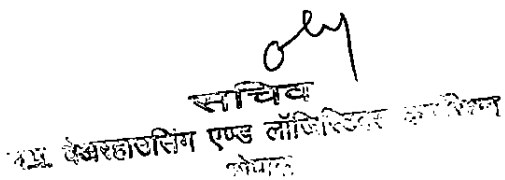 सचिव
म.प्र. वेअरहाउसिंग एण्ड लॉजिस्टिक्स
भोपाल